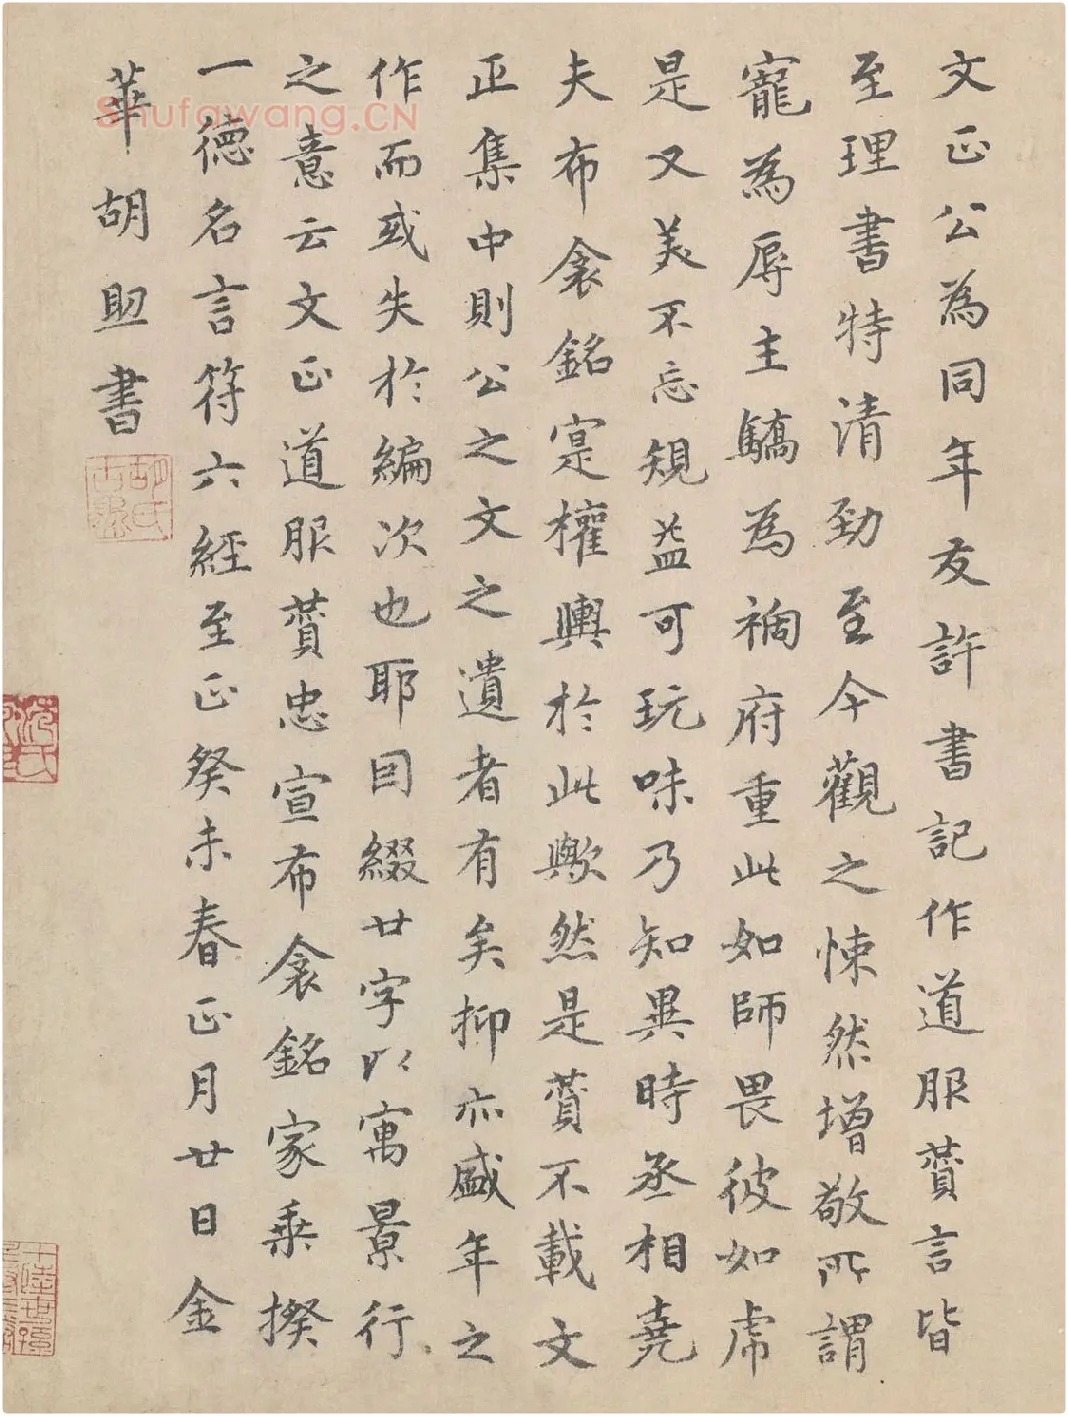 文正公為同年友許書記作道服賛言皆
至理書特清勁至今觀之悚然增敬所謂
寵為辱主驕為禍府重此如師畏彼如虎
是又美不忘規益可玩味乃知異時丞相堯
夫布衾銘寔權輿於此歟然是賛不載文
正集中則公之文之遺者有矣抑亦盛年之
作而或失於編次也耶因綴廿字以寓景行
之意云文正道服賛忠宣布衾銘家乘揆
一德名言符六經至正癸未春正月廿日金
華胡助書
Shufawang.CN
胡氏古愚